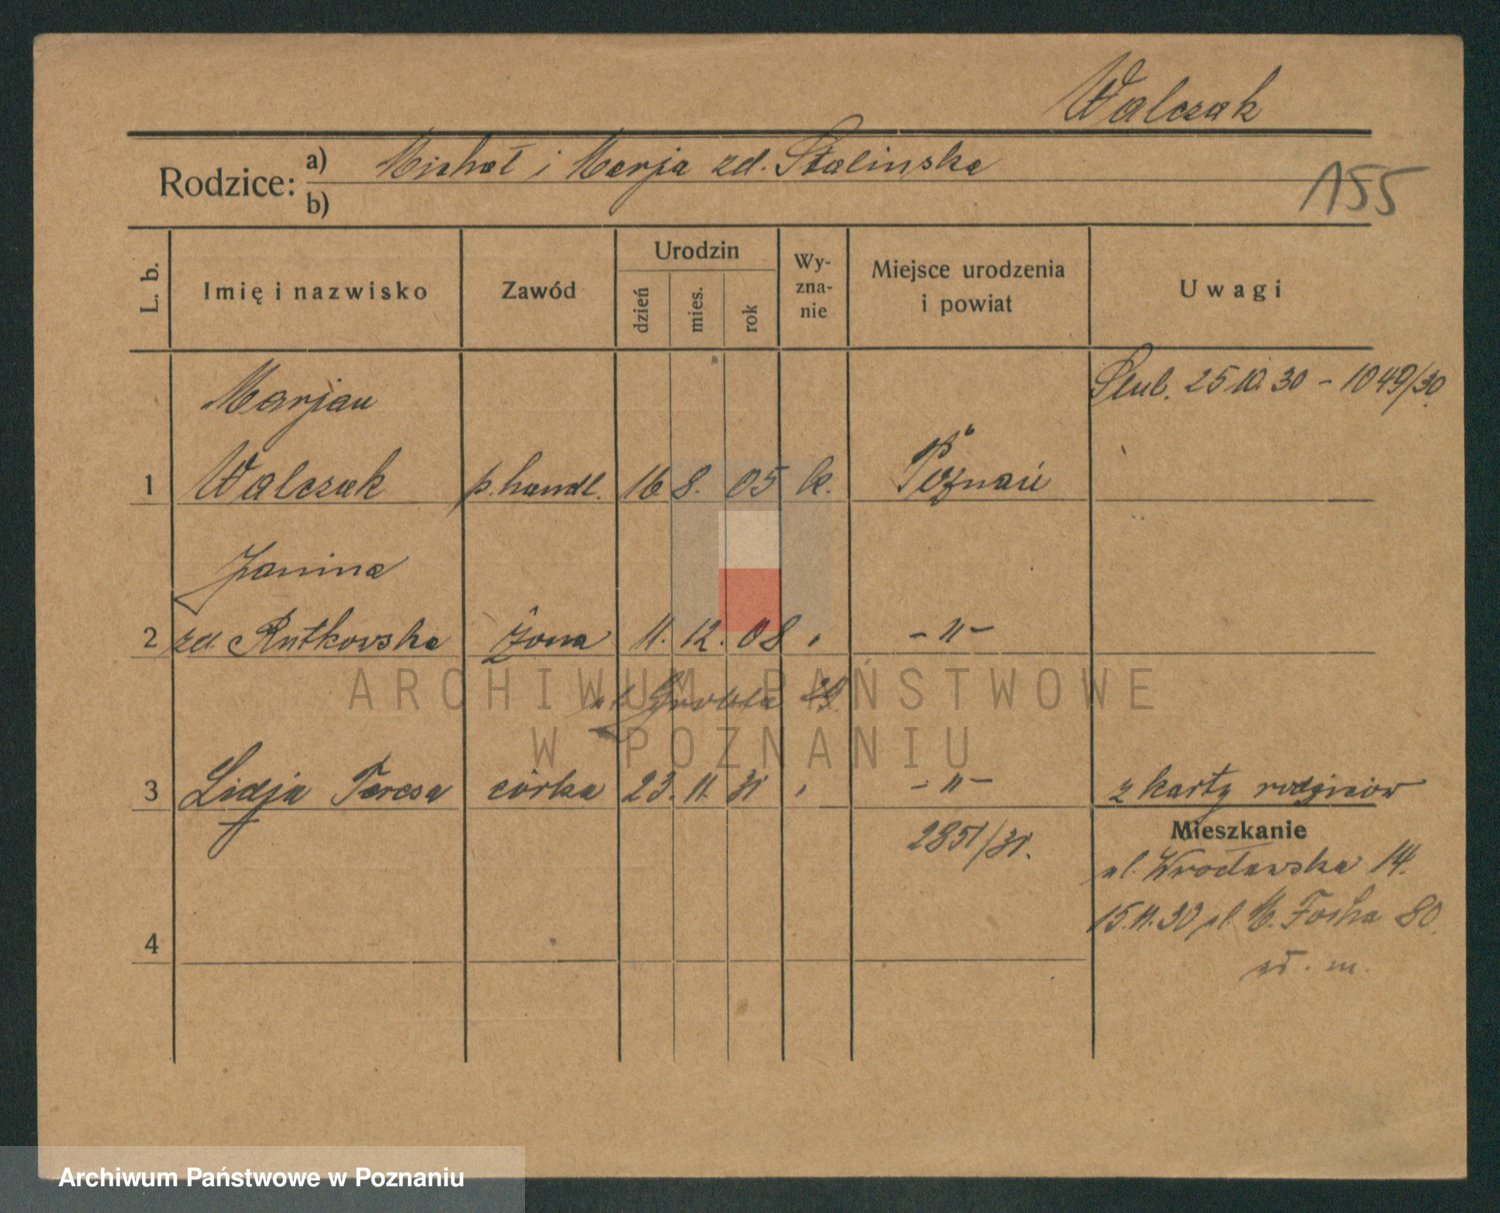 Walczak
Rodzice: a) Michał i Marja zd. Stalinska
155
b)
L. b. Imię i nazwisko Zawód Urodzin dzień mies. rok Wy-zna-nie Miejsce urodzenia i powiat Uwagi
Marjan Ślub. 25 10. 30 - 1049/30
1 Walczak p. handl. 16 8. 05 k. Poznań
Janina
2 zd. Rutkowska żona 11. 12. 08 " - " -
ul. Grobla
ARCHIWUM PAŃSTWOWE
W POZNANIU
3 Lidja Teresa córka 23. 11. 31 " - " - z karty rodziców
2851/31. Mieszkanie
ul. Wrocławska 14.
15.11.30 ul. M. Focha 80.
4
Archiwum Państwowe w Poznaniu